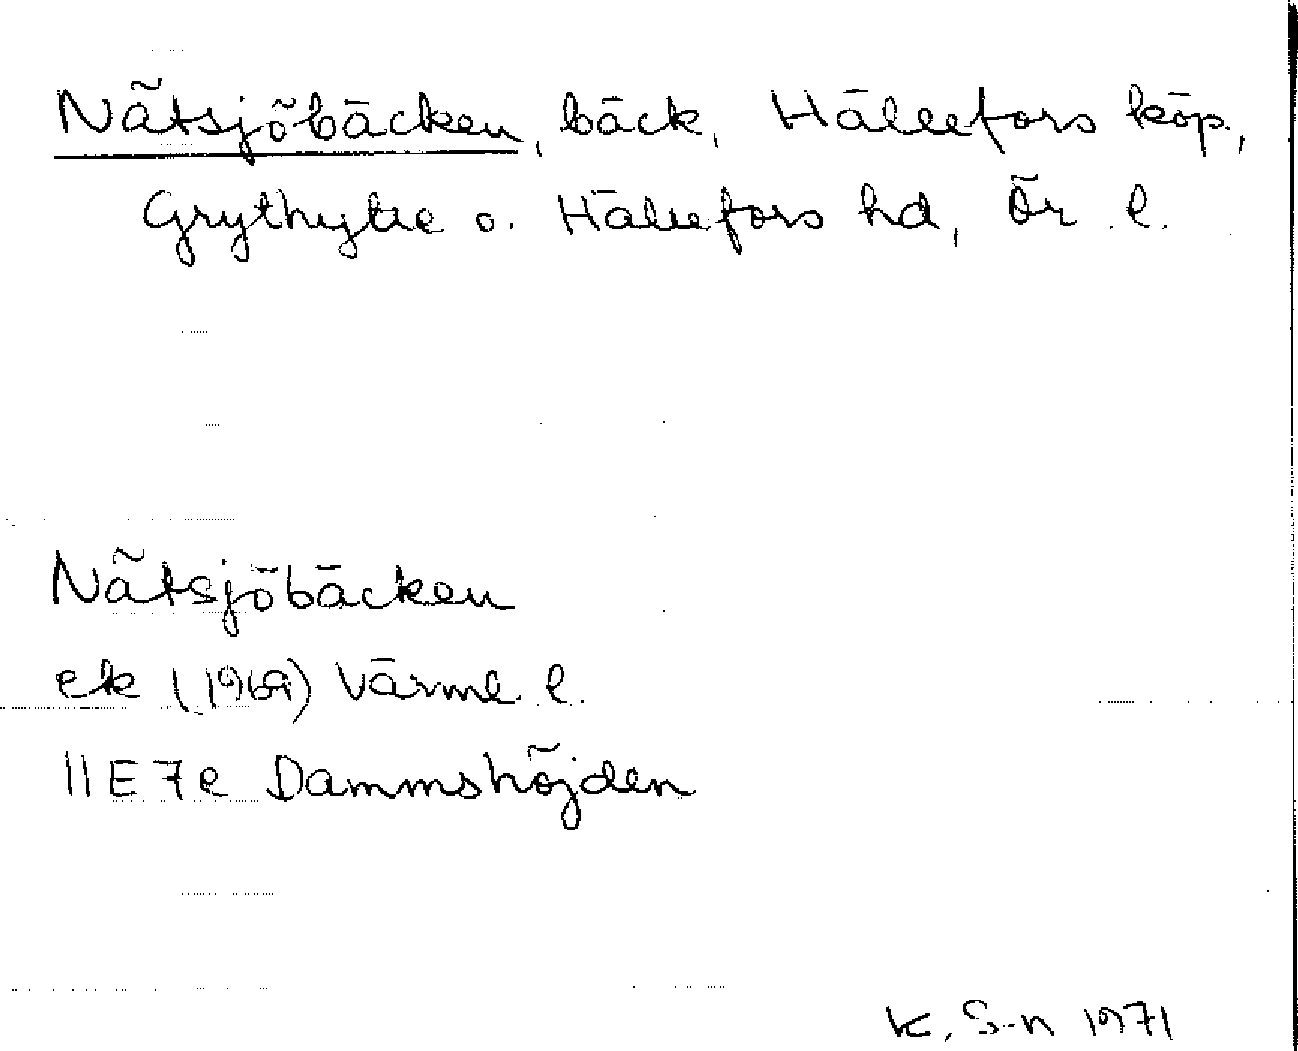 Nätsjöbäcken, bäck, Hällefors köp,
Grythytte o. Hällefors hd, Ör. l.
Nätsjöbäcken
ek (1969) Värml. l.
11E7e Dammshöjden
K. S-n 1971